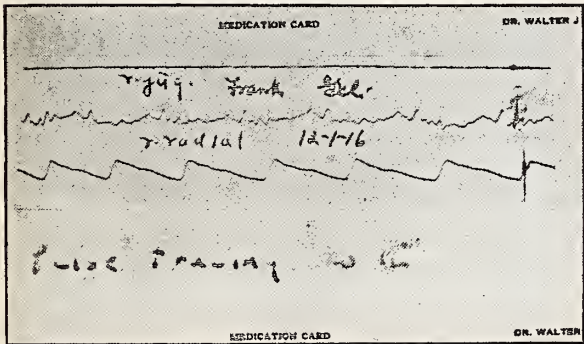 MEDICATION CARD DR. WALTER J
r. jug. Frank
r. radial 12-1-16
Pulse Tracing
MEDICATION CARD DR. WALTER